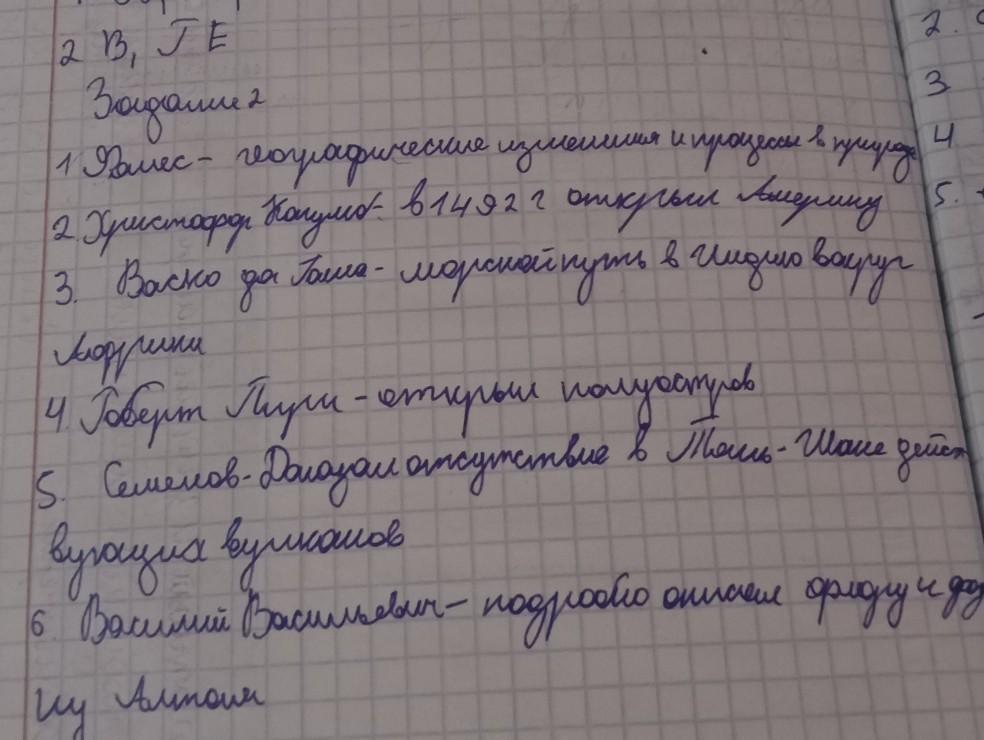 2 В, Г Е
Задание 2
1 Фалес - географические изменения и процессы в природе
2. Христофор Колумб - в 1492 г открыл Америку
3. Васко да Гама - морской путь в Индию вокруг
Африки
4. Роберт Пири - открыл полуостров
5. Семенов - Доказал отсутствие в Тянь-Шане дейст
вующих вулканов
6. Василий Васильевич - подробно описал флору и фау
ну Алтая
2.
3
4
5.